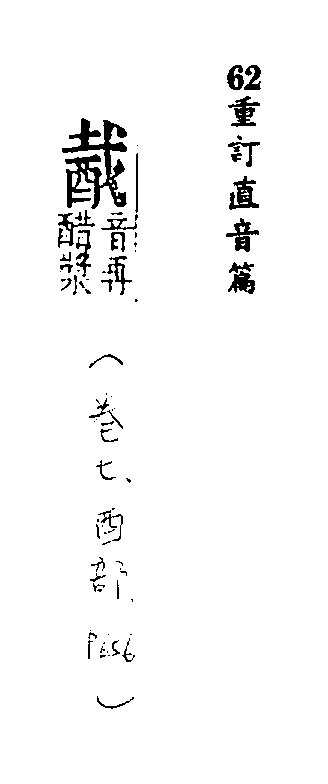 62重訂直音篇
酨
音再
醋漿
(卷七、酉部、P.656)